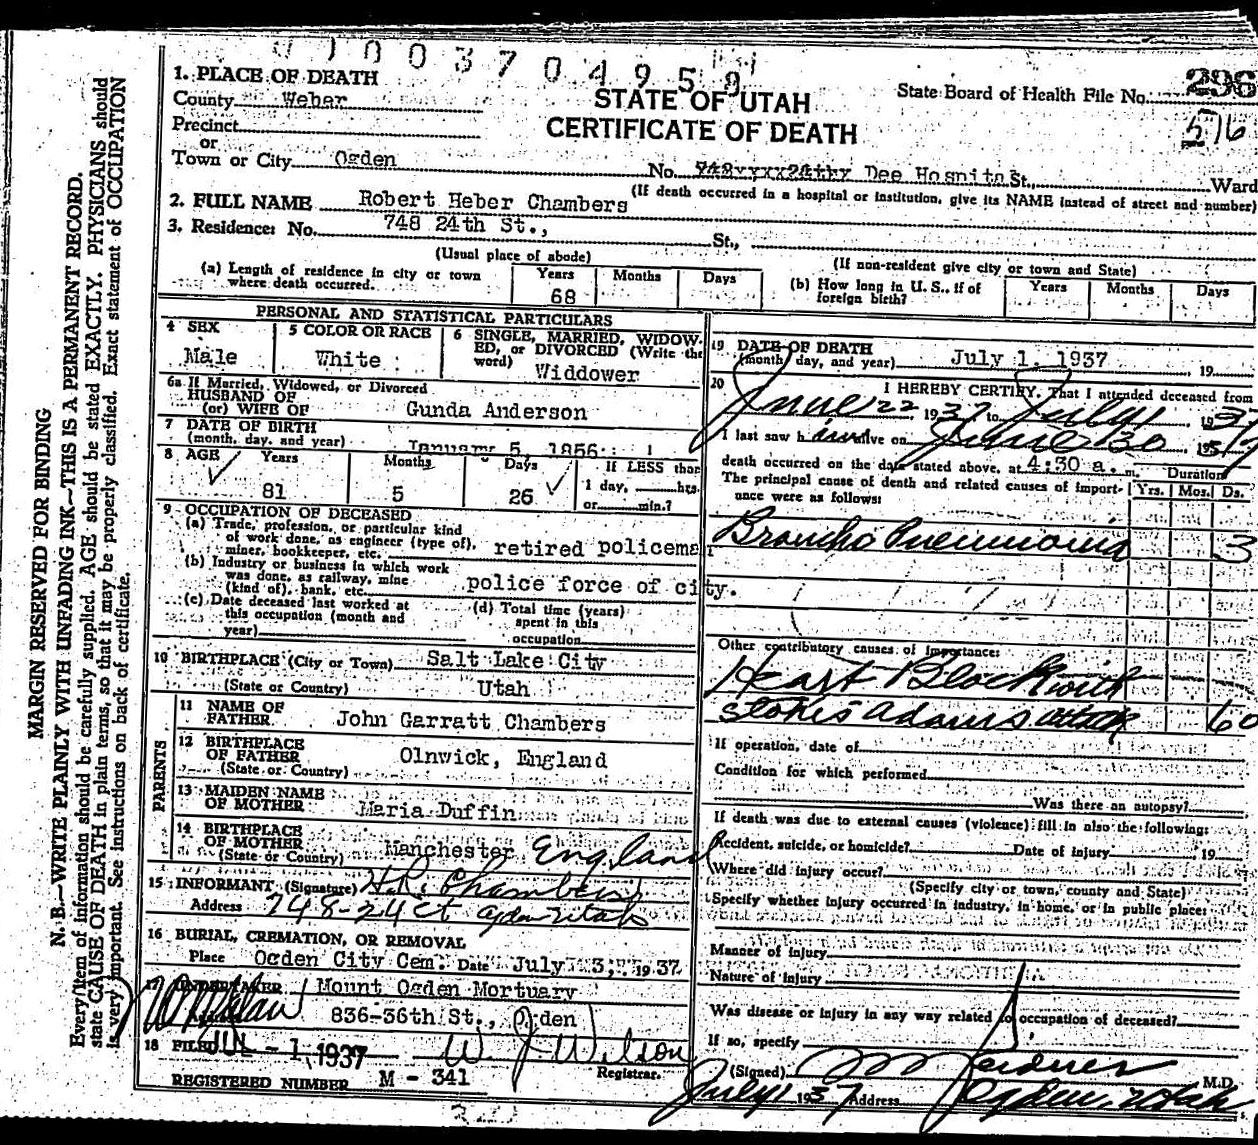 0 1 0 0 3 7 0 4 9 5 9
1. PLACE OF DEATH
County Weber
Precinct
or
Town or City Ogden
STATE OF UTAH
CERTIFICATE OF DEATH
State Board of Health File No. 296
576
No. Dee Hospital St., Ward
(If death occurred in a hospital or institution, give its NAME instead of street and number)
2. FULL NAME Robert Heber Chambers
3. Residence: No. 748 24th St., St.,
(Usual place of abode) (If non-resident give city or town and State)
(a) Length of residence in city or town where death occurred. Years 68 Months Days
(b) How long in U. S., if of foreign birth? Years Months Days
PERSONAL AND STATISTICAL PARTICULARS
4 SEX Male
5 COLOR OR RACE White
6 SINGLE, MARRIED, WIDOWED, or DIVORCED (Write the word) Widdower
6a If Married, Widowed, or Divorced
HUSBAND OF
(or) WIFE OF Gunda Anderson
7 DATE OF BIRTH
(month, day, and year) January 5, 1856
8 AGE Years 81 Months 5 Days 26 If LESS than 1 day, hrs. or min.?
9 OCCUPATION OF DECEASED
(a) Trade, profession, or particular kind of work done, as engineer (type of), miner, bookkeeper, etc. retired policeman
(b) Industry or business in which work was done, as railway, mine (kind of), bank, etc. police force of city.
(c) Date deceased last worked at this occupation (month and year)
(d) Total time (years) spent in this occupation
10 BIRTHPLACE (City or Town) Salt Lake City
(State or Country) Utah
PARENTS
11 NAME OF FATHER John Garratt Chambers
12 BIRTHPLACE OF FATHER Olnwick, England
(State or Country)
13 MAIDEN NAME OF MOTHER Maria Duffin
14 BIRTHPLACE OF MOTHER Manchester England
(State or Country)
15 INFORMANT (Signature) H.R. Chambers
Address 748-24 Ogden Utah
16 BURIAL, CREMATION, OR REMOVAL
Place Ogden City Cem. Date July 3, 1937
17 UNDERTAKER Mount Ogden Mortuary
836-36th St., Ogden
18 FILED JUL -1 1937 W J Wilson
Registrar.
REGISTERED NUMBER M - 341
19 DATE OF DEATH
(month, day, and year) July 1, 1937 19
20 I HEREBY CERTIFY, That I attended deceased from
June 22 1937 to July 1 1937
I last saw h alive on June 30 1937
death occurred on the date stated above, at 4:30 a. m. Duration
The principal cause of death and related causes of importance were as follows: Yrs. Mos. Ds.
Broncho Pneumonia 3
Other contributory causes of importance:
Heart Block with
Stokes Adams attack 60
If operation, date of
Condition for which performed
Was there an autopsy?
If death was due to external causes (violence) fill in also the following:
Accident, suicide, or homicide? Date of injury 19
Where did injury occur?
(Specify city or town, county and State)
Specify whether injury occurred in industry, in home, or in public place:
Manner of injury
Nature of injury
Was disease or injury in any way related to occupation of deceased?
If so, specify
(Signed) M.D.
July 1 1937 Address Ogden, Utah
MARGIN RESERVED FOR BINDING
N. B.—WRITE PLAINLY WITH UNFADING INK—THIS IS A PERMANENT RECORD.
Every item of information should be carefully supplied. AGE should be stated EXACTLY. PHYSICIANS should
state CAUSE OF DEATH in plain terms, so that it may be properly classified. Exact statement of OCCUPATION
is very important. See instructions on back of certificate.